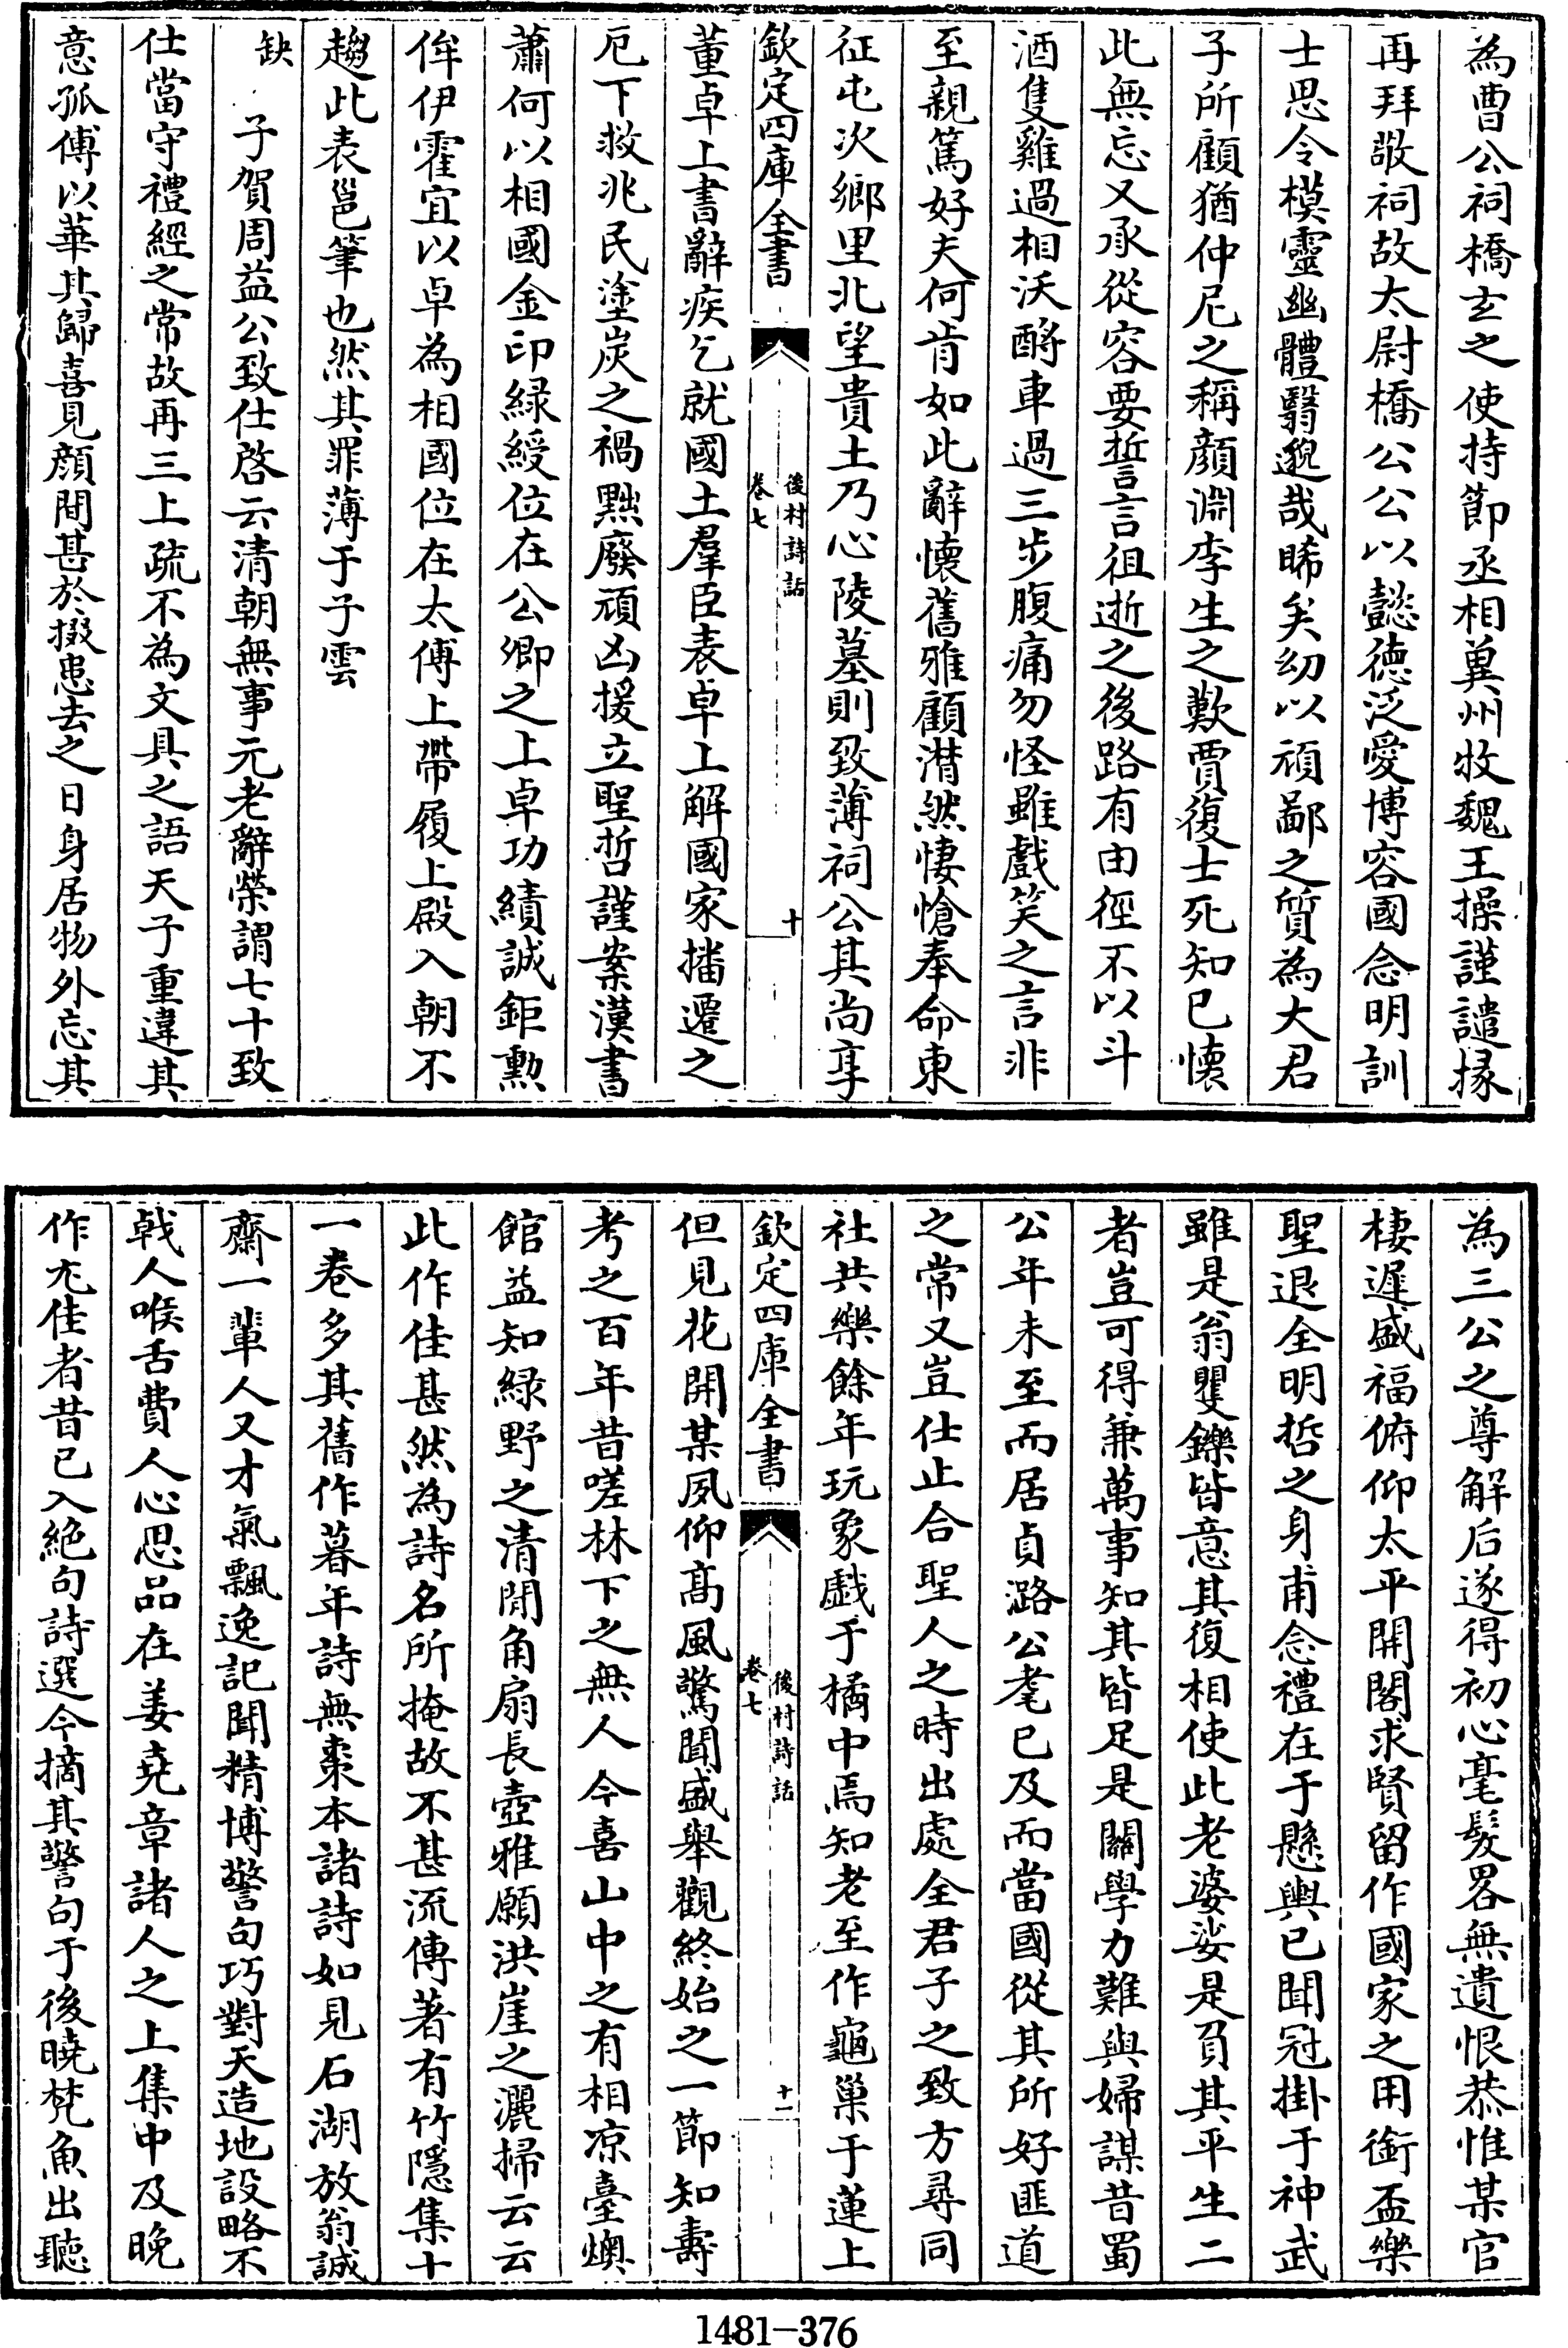 為曹公祠橋玄之使持節丞相冀州牧魏王操謹譴掾
再拜敬祠故太尉橋公公以懿徳泛愛博容國念明訓
士思令模靈幽體翳邈哉睎矣幼以頑鄙之質為大君
子所顧猶仲尼之稱顔淵李生之歎賈復士死知已懐
此無忘又承從容要誓言徂逝之後路有由徑不以斗
酒隻雞過相沃酹車過三步腹痛勿怪雖戲笑之言非
至親篤好夫何肯如此辭懐舊雅顧潸然悽愴奉命東
征屯次鄉里北望貴土乃心陵墓則致薄祠公其尚享
欽定四庫全書
後村詩話
卷七
十
董卓上書辭疾乞就國土羣臣表卓上解國家播遷之
厄下救兆民塗炭之禍黜廢頑凶援立聖哲謹案漢書
蕭何以相國金印緑綬位在公卿之上卓功績誠鉅勲
侔伊霍宜以卓為相國位在太傅上帶履上殿入朝不
趨此表邕筆也然其罪薄于子雲
缺 子賀周益公致仕啓云清朝無事元老辭榮謂七十致
仕當守禮經之常故再三上疏不為文具之語天子重違其
意孤傅以華其歸喜見顔間甚於掇患去之日身居物外忘其
為三公之尊解后遂得初心毫髮畧無遺恨恭惟某官
棲遲盛福俯仰太平開閣求賢留作國家之用銜盃樂
聖退全明哲之身甫念禮在于懸輿已聞冠掛于神武
雖是翁矍鑠皆意其復相使此老婆娑是負其平生二
者豈可得兼萬事知其皆足是關學力難與婦謀昔蜀
公年未至而居貞潞公耄已及而當國從其所好匪道
之常又豈仕止合聖人之時出處全君子之致方尋同
社共樂餘年玩象戲于橘中焉知老至作龜巢于蓮上
欽定四庫全書
後村詩話
卷七
十一
但見花開某夙仰髙風驚聞盛舉觀終始之一節知壽
考之百年昔嗟林下之無人今喜山中之有相凉臺燠
館益知緑野之清閒角扇長壺雅願洪崖之灑掃云云
此作佳甚然為詩名所掩故不甚流傳著有竹隠集十
一卷多其舊作暮年詩無棗本諸詩如見石湖放翁誠
齋一輩人又才氣飄逸記聞精博警句巧對天造地設略不
戟人喉舌費人心思品在姜堯章諸人之上集中及晚
作尤佳者昔已入絶句詩選今摘其警句于後曉梵魚出聽
1481-376